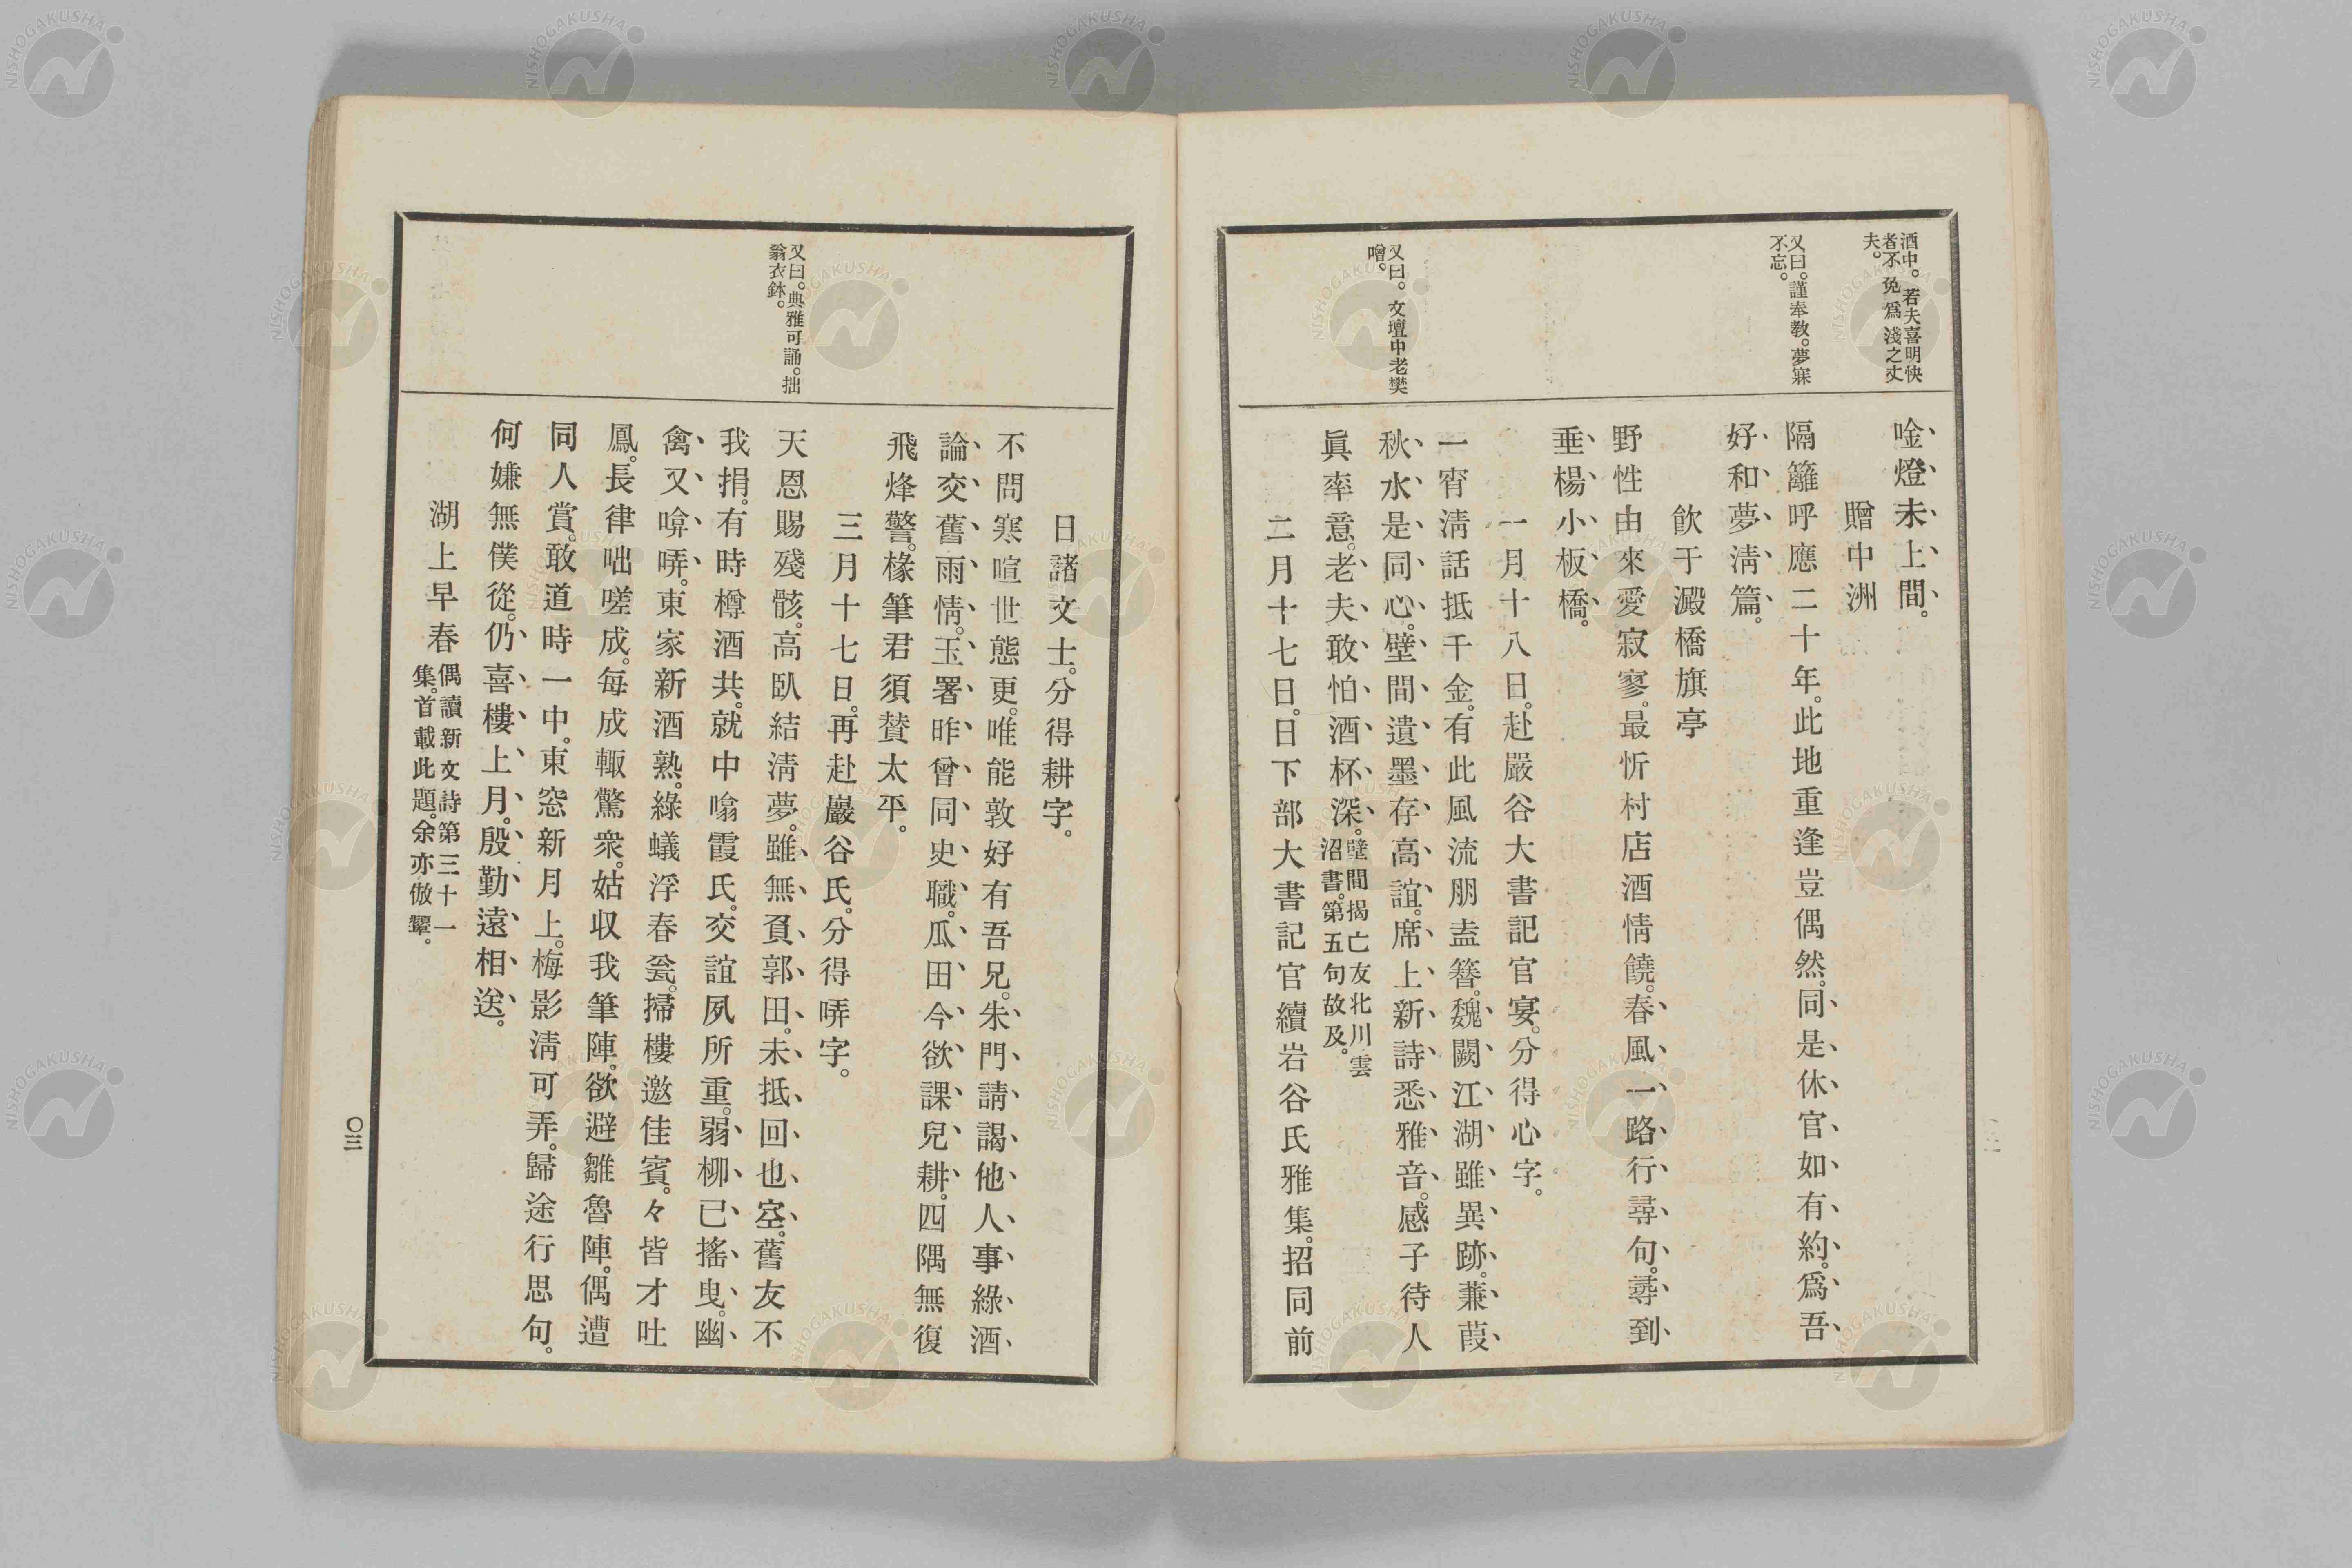 酒中。若夫喜明快
者不免爲淺之丈
夫。
又曰。謹奉敎。夢寐
不忘。
又曰。文壇中老樊
噲。
唫燈未上間。
贈中洲
隔籬呼應二十年。此地重逢豈偶然。同是休官如有約。爲吾
好和夢淸篇。
飮于澱橋旗亭
野性由來愛寂寥。最忻村店酒情饒。春風一路行尋句。尋到
垂楊小板橋。
一月十八日。赴嚴谷大書記官宴。分得心字。
一宵淸話抵千金。有此風流朋盍簪。魏闕江湖雖異跡。蒹葭
秋水是同心。壁間遺墨存高誼。席上新詩悉雅音。感子待人
眞率意。老夫敢怕酒杯深。壁間揭亡友北川雲
沼書。第五句故及。
二月十七日。日下部大書記官續岩谷氏雅集。招同前
日諸文士。分得耕字。
不問寒喧世態更。唯能敦好有吾兄。朱門請謁他人事綠酒
論交舊雨情。玉署昨曾同史職。瓜田今欲課兒耕。四隅無復
飛烽警。椽筆君須賛太平。
又曰。典雅可誦。拙
翁衣鉢。
三月十七日。再赴巖谷氏。分得哢字。
天恩賜殘骸。高臥結淸夢。雖無負郭田。未抵回也空。舊友不
我捐。有時樽酒共。就中噏霞氏。交誼夙所重。弱柳已搖曳。幽
禽又喭哢。東家新酒熟。綠蟻浮春瓮。掃樓邀佳賓。々皆才吐
鳳。長律咄嗟成。每成輙驚衆。姑収我筆陣。欲避雛魯陣。偶遭
同人賞。敢道時一中。東窓新月上。梅影淸可弄。歸途行思句。
何嫌無僕從。仍喜樓上月。殷勤遠相送。
湖上早春 偶讀新文詩第三十一
集。首載此題。余亦倣顰。
〇三
NISHOGAKUSHA